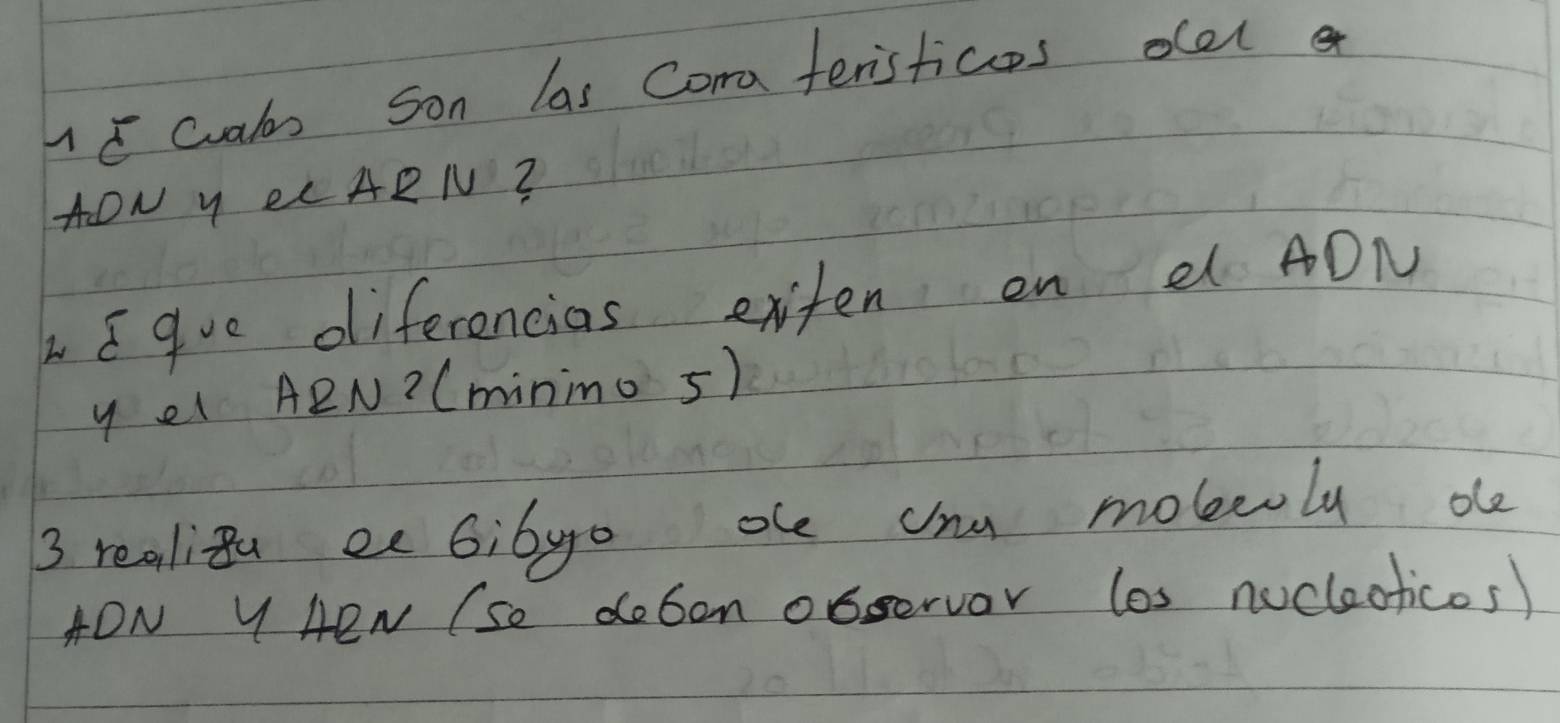 1 ¿ Cuales son las Carateristicas del
ADN y el ARN?
2 ¿ que diferencias exiten en el ADN
y el ARN? (minimo 5)
3 realiza el bibujo de una molecula de
ADN y ARN (se deben observar los nucleoticos)